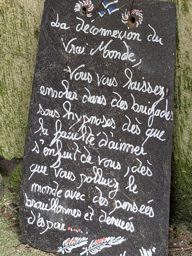 La déconnexion du
Vrai Monde,
Vous vous laissez
enrôler dans des brigades
sous hypnoses dès que
la faculté d'aimer
s'enfuit de vous, dès
que vous polluez le
monde avec des pensées
brouillonnes et dénuées
d'espoir....